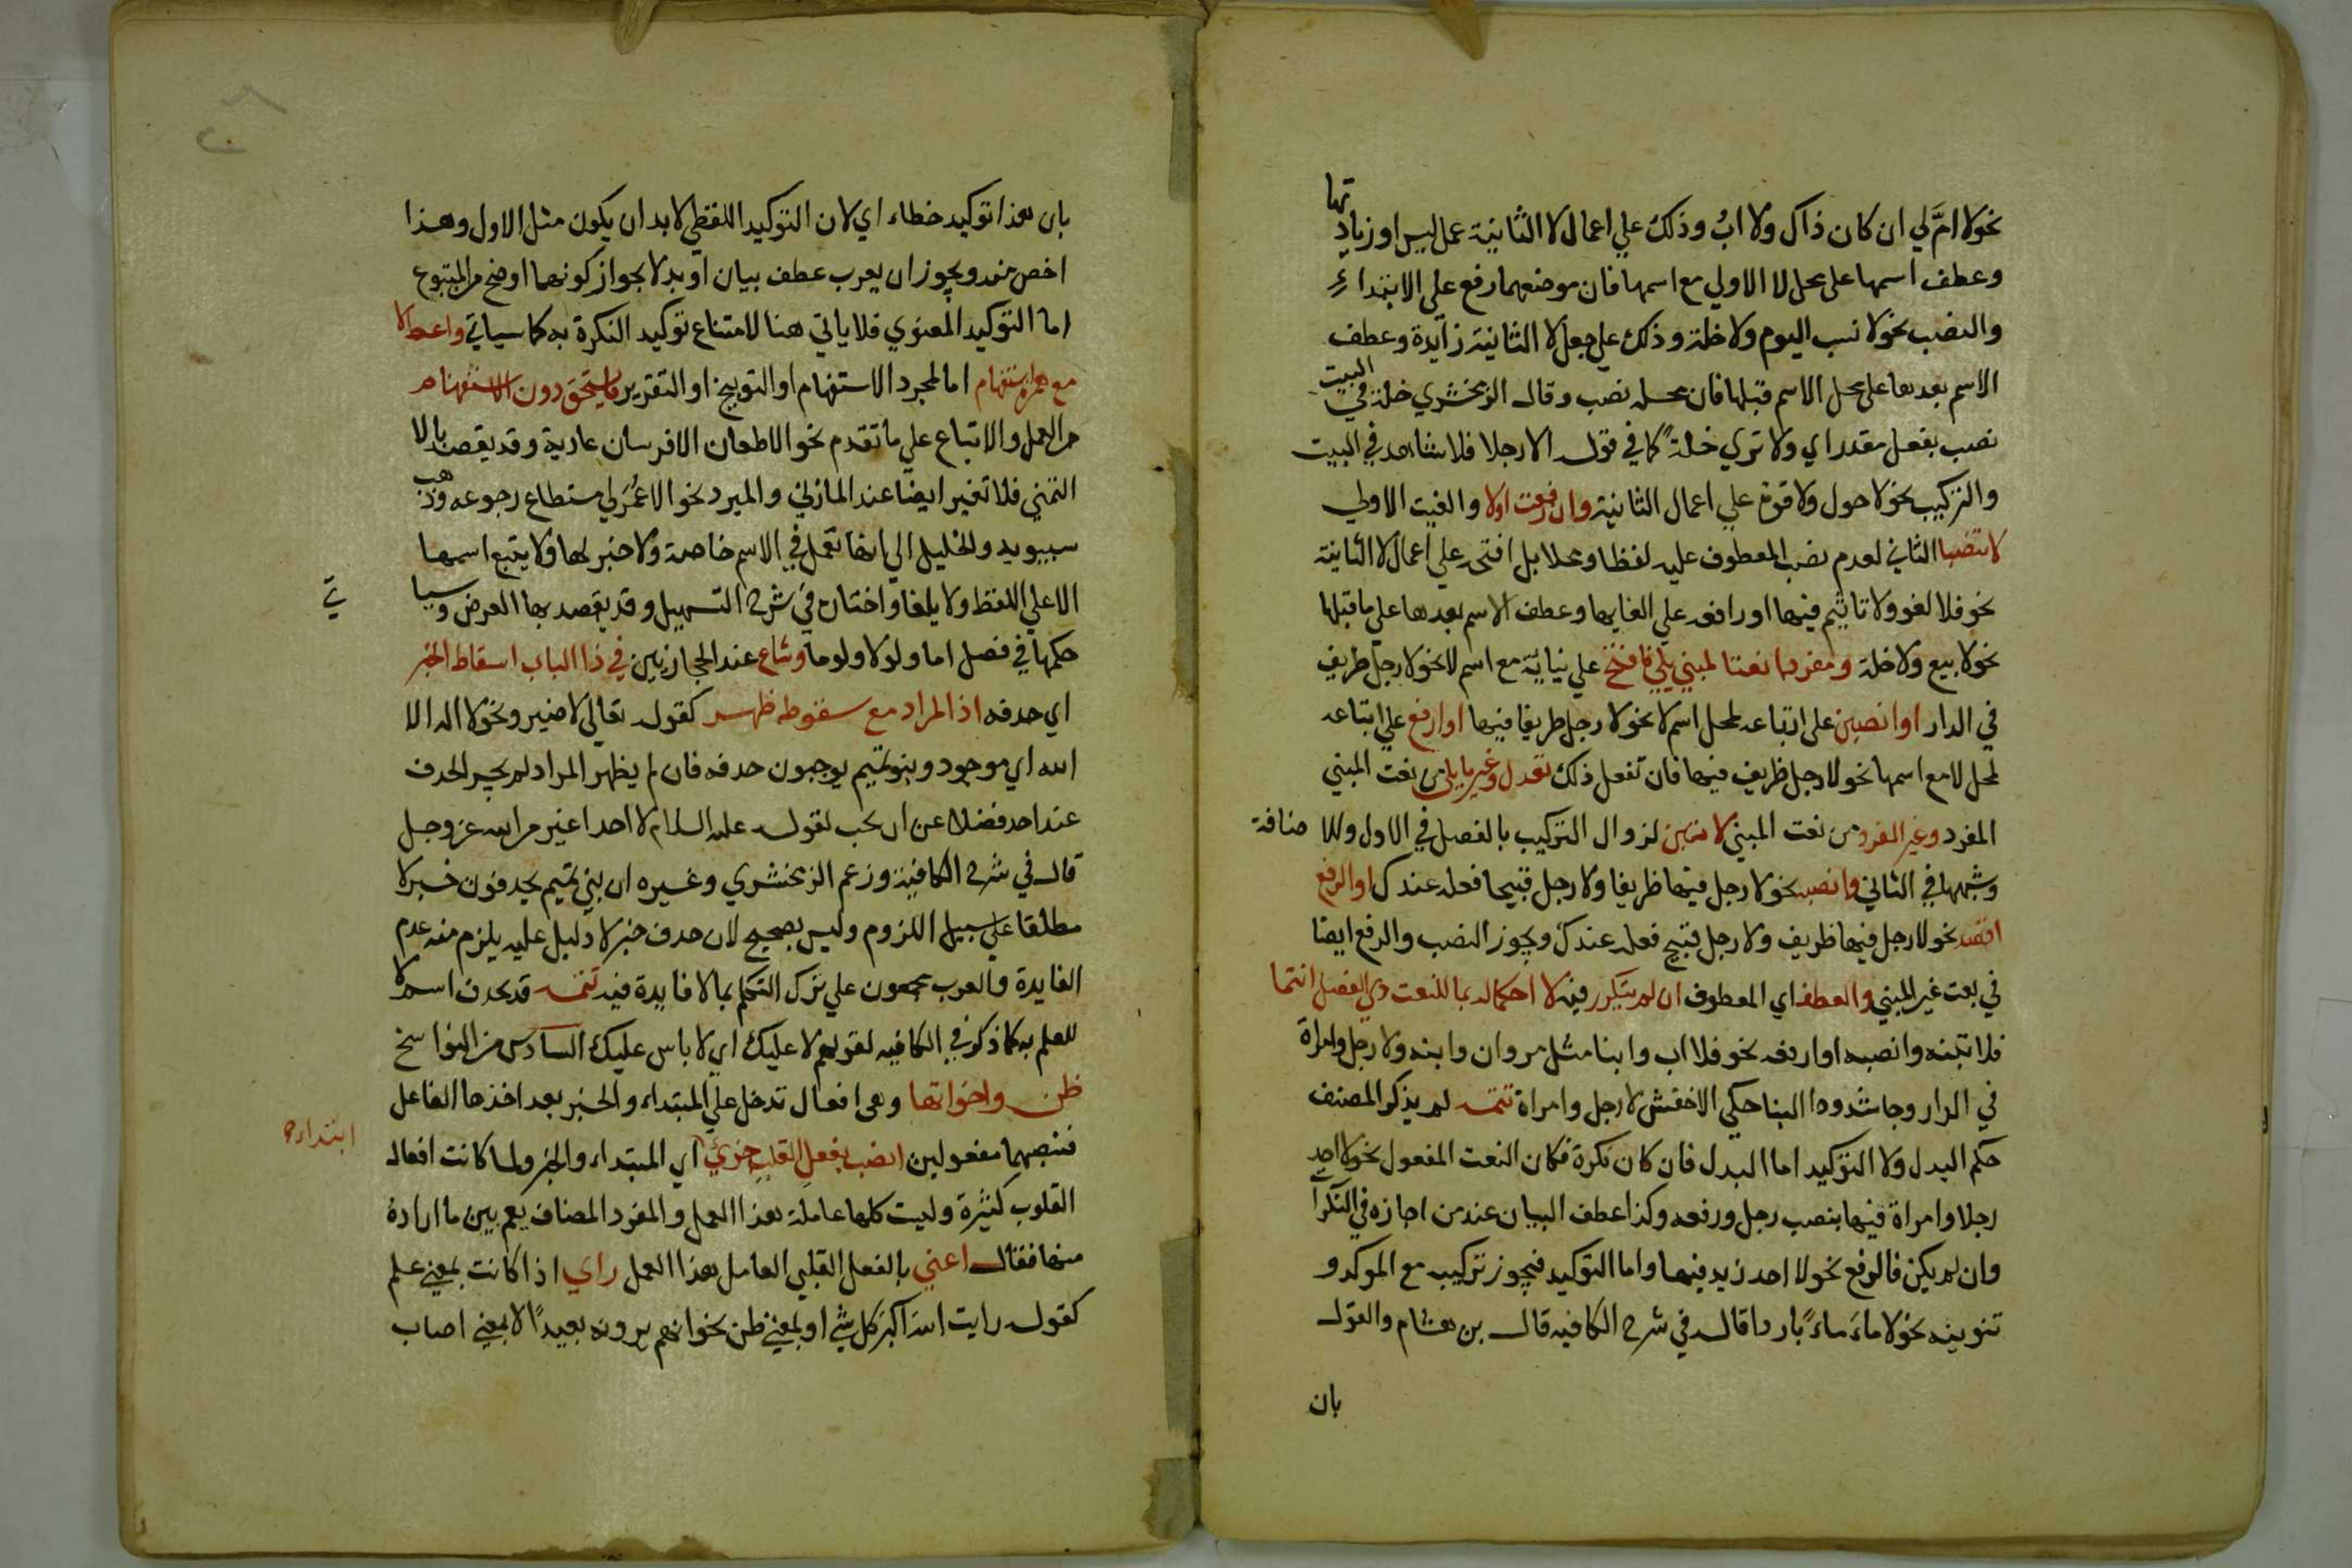 نحو لا امَّ لي ان كان ذاك ولا ابُ وذلك علي اعمال لا الثانية عمل ليس او زيادتها
وعطف اسمها على محل لا الاولي مع اسمها فان موضعهما رفع على الابتداء
والنصب نحو لا نسب اليوم ولا خلة وذلك علي جعل لا الثانية زايدة وعطف
الاسم بعدها على محل الاسم قبلها فان محله نصب وقال الزمخشري خلة في البيت
نصب بفعل مقدر اي ولا تري خلةً كما في قوله الا رجلا فلا شاهد في البيت
والتركيب نحو لا حول ولا قوة علي اعمال الثانية وان رفعت اولا والغيت الاولي
لا تنصبا الثاني لعدم نصب المعطوف عليه لفظا ومحلا بل افتحه علي اعمال لا الثانية
نحو فلا لغو ولا تاثيم فيها او رافعه علي الغايها وعطف الاسم بعدها على ما قبلها
نحو لا بيع ولا خلة ومفردا نعتا لمبني يلي فافتح علي نيائة مع اسم لا نحو لا رجل ظريف
في الدار او انصبن على اتباعه لمحل اسم لا نحو لا رجل ظريفا فيها او ارفع علي اتباعه
لمحل لا مع اسمها نحو لا رجل ظريف فيها فان تفعل ذلك تعدل وغير ما يلي من نعت المبني
المفرد وغير المفرد من نعت المبني لا تبن لزوال التركيب بالفصل في الاول وللاضافة
وشبهها في الثاني وانصبه نحو لا رجل فيها ظريفا ولا رجل قبيحا فعله عندك او الرفع
اقصد نحو لا رجل فيها ظريف ولا رجل قبيح فعله عندك ويجوز النصب والرفع ايضا
في نعت غير المبني والعطف اي المعطوف ان لم يتكرر فيه لا احكما له بما للنعت ذي الفصل انتما
فلا تبنه وانصبه او ارفعه نحو فلا اب وابنا مثل مروان وابنه ولا رجل وامراة
في الدار وجا شذوذا البنا حكي الاخفش لا رجل وامراة تتمه لم يذكر المصنف
حكم البدل ولا التوكيد اما البدل فان كان نكرة فكان النعت المفعول نحو لا احد
رجلا وامراة فيها بنصب رجل ورفعه وكذا عطف البيان عند من اجازه في النكرا
وان لم يكن فالرفع نحو لا احد زيد فيها واما التوكيد فيجوز تركيب مع الموكد و
تنوينه نحو لا ماءَ ماءً باردا قاله في شرح الكافيه قال بن هشام والقول
بان
بان هذا توكيد خطاء اي لان التوكيد اللفظي لا بد ان يكون مثل الاول وهذا
اخص منه ويجوز ان يعرب عطف بيان او بدلا بجواز كونهما اوضح من المتبوع
اما التوكيد المعنوي فلا ياتي هنا لامتناع توكيد النكرة به كما سياتي واعط لا
مع همزة استفهام اما لمجرد الاستفهام او التوبيخ او التقرير ما يستحق دون الاستفهام
من العمل والاتباع علي ما تقدم نحو الا طعان الا فرسان عادية وقد يقصد بالا
التمني فلا تغير ايضا عند المازني والمبرد نحو الا عُمرَ لي مستطاع رجوعه وذهب
سيبويه والخليل الي انها تعمل في الاسم خاصة ولا خبر لها ولا يتبع اسمها
الا علي اللفظ ولا يلغا واختاره في شرح التسهيل وقد يقصد بها العرض وسيا
تي
حكمها في فصل اما ولولا ولوما وشاع عند الحجازيين في ذا الباب اسقاط الخبر
اي حذفه اذ المراد مع سقوطه ظهر كقوله تعالي لا ضير ونحو لا اله الا
الله اي موجود وبنو تميم يوجبون حذفه فان لم يظهر المراد لم يجز الحذف
عند احد فضلا عن ان يجب لقوله عليه السلام لا احد اغير من الله عز وجل
قال في شرح الكافية وزعم الزمخشري وغيره ان بني تميم يحذفون خبر لا
مطلقا علي سبيل اللزوم وليس بصحيح لان حذف خبر لا دليل عليه يلزم منه عدم
الفايدة والعرب مجمعون علي ترك التكلم بما لا فايدة فيه تتمه قد يحذف اسم لا
للعلم به كما ذكر في الكافيه لقولهم لا عليك اي لا باس عليك السادس من النواسخ
ظن واخواتها وهى افعال تدخل علي المبتداء والخبر بعد اخذها الفاعل
فتنصبهما مفعولين انصب بفعل القلب جزئي اي المبتداء والخبر ولما كانت افعال
ابتداء
القلوب كثيرة وليست كلها عاملة هذا العمل والمفرد المضاف يعم بين ما اراده
منها فقال اعني بالفعل القلبي العامل هذا العمل راي اذا كانت بمعني علم
كقوله رايت الله اكبر كل شي او بمعني ظن نحو انهم يرونه بعيدًا لا بمعني اصاب